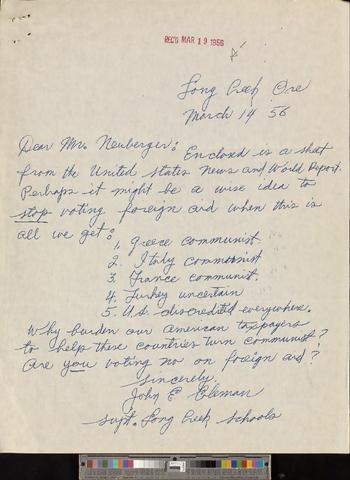 REC'D MAR 19 1956
Long Creek Ore
March 14 56
Dear Mr. Neuberger: Enclosed is a sheet
from the United States News and World Report.
Perhaps it might be a wise idea to
stop voting foreign aid when this is
all we get:
1. Greece communist.
2. Italy communist
3. France communist.
4. Turkey uncertain
5. U.S. discredited everywhere.
Why burden our American taxpayers
to help these countries turn communist?
Are you voting no on foreign aid?
Sincerely,
John E
Supt. Long Creek Schools